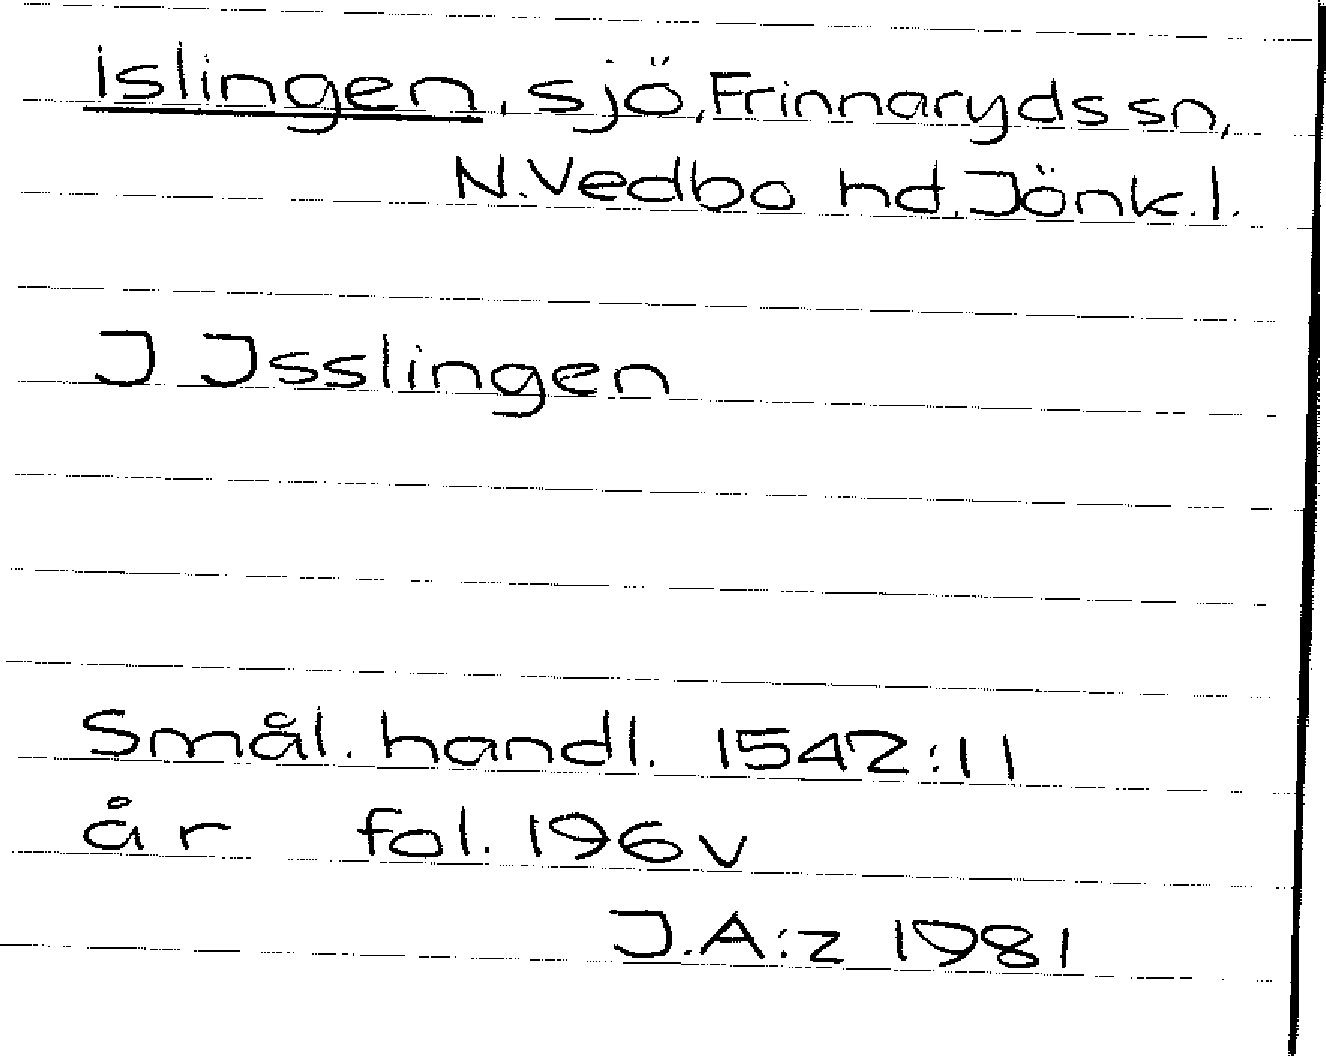 Islingen, sjö, Frinnaryds sn,
N. Vedbo hd. Jönk. l.
J Jsslingen
Smål. handl. 1542:11
år fol. 196 v
J.A:z 1981